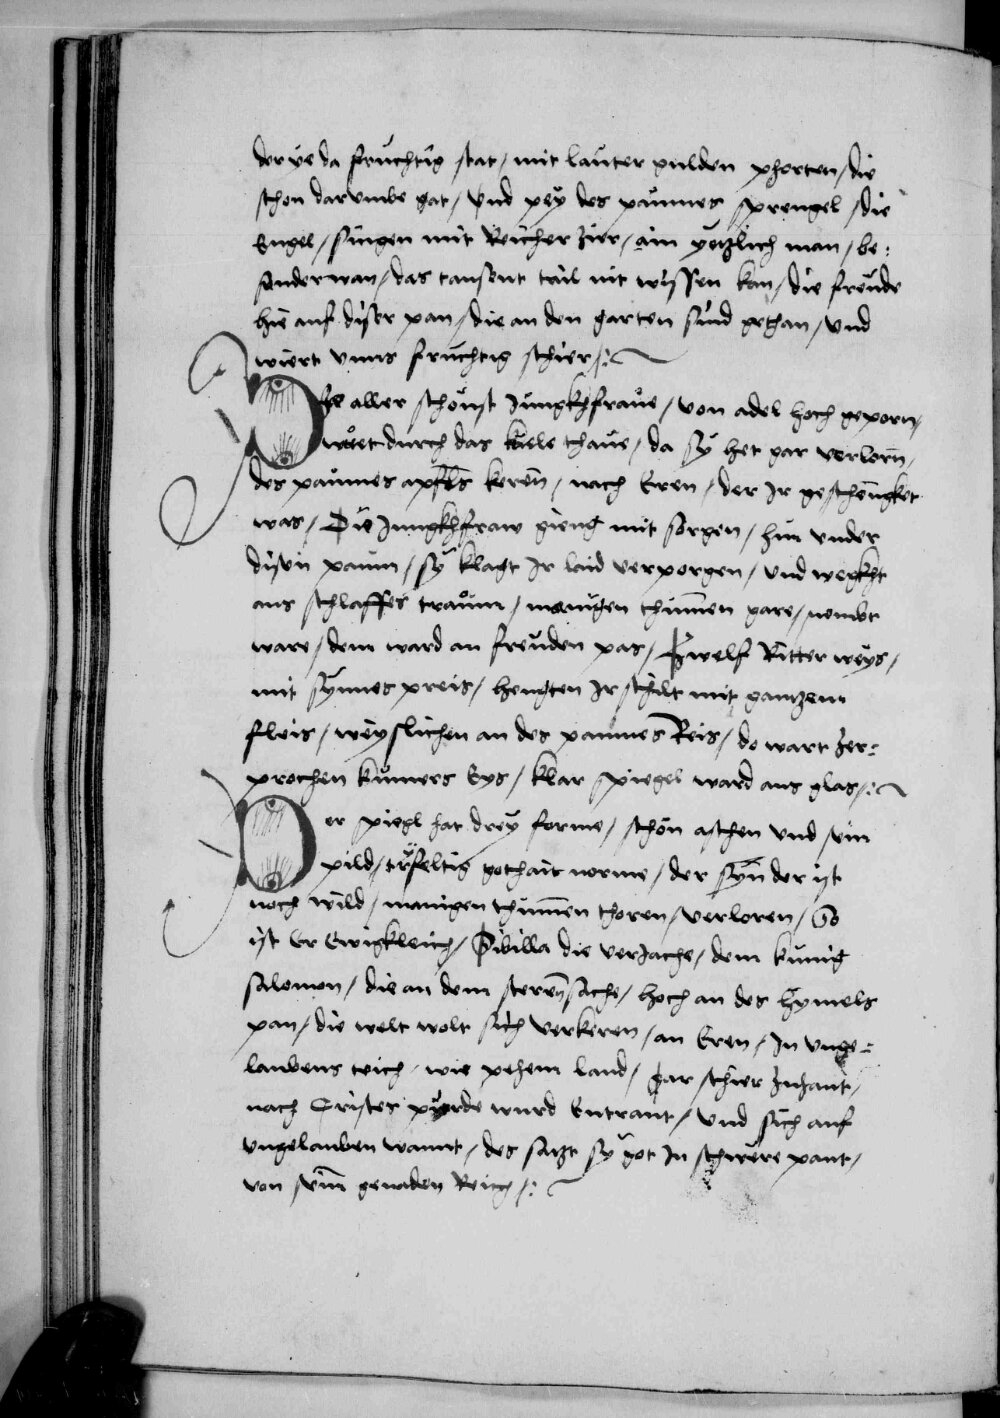 der ye da fruchtig stat / mit lauter gulden phorten / die
schon darumbe gat / Vnd pey des paumes sprengel / die
Engel / singen mit Reicher zier / ain yetzlich man / be:
sunder wan / das tausent tail nit wissen kan / die freude
hie auf diser pan / die an den garten sind gethan / Vnd
wiert vnns fruchtig schier /:
Die aller schönst Jungkhfraue / von adel hoch geporn /
wüet durch das küele thaue / da sy het gar verlorn /
des paumes apfels keren / nach Eren / der Ir geschengket
was / Die Jungkhfraw gieng mit sorgen / hin vnder
disen paum / sy klagt Ir laid verporgen / Vnd wegkht
aus schlaffes traum / manigen thumen gare / nembt
ware / dem ward an freuden pas / Zwelf Ritter weys /
mit synnes preis / hengten Ir schilt mit gantzem
fleis / weyslichen an des paumes Reis / do wart zer:
prochen kumers Eys / klar spiegel ward aus glas /:
Der spiegl hat drey forme / schön aschen vnd sein
pild / trifeltig gothait norme / der syn der ist
noch wild / manigen thummen thoren / verloren / So
ist Er Ewigkleich / Sibilla die veriache / dem kunig
salomon / die an dem steren sache / hoch an des hymels
pan / die welt wolt sich verkeren / an Eren / In vnge:
laubens teich / wie pehem land / gar schier zuhant /
nach Cristes purde wurd Entrant / Vnd sich auf
vngelauben wannt / des satzt sy got In schwere pant /
von seim genaden Reich /: